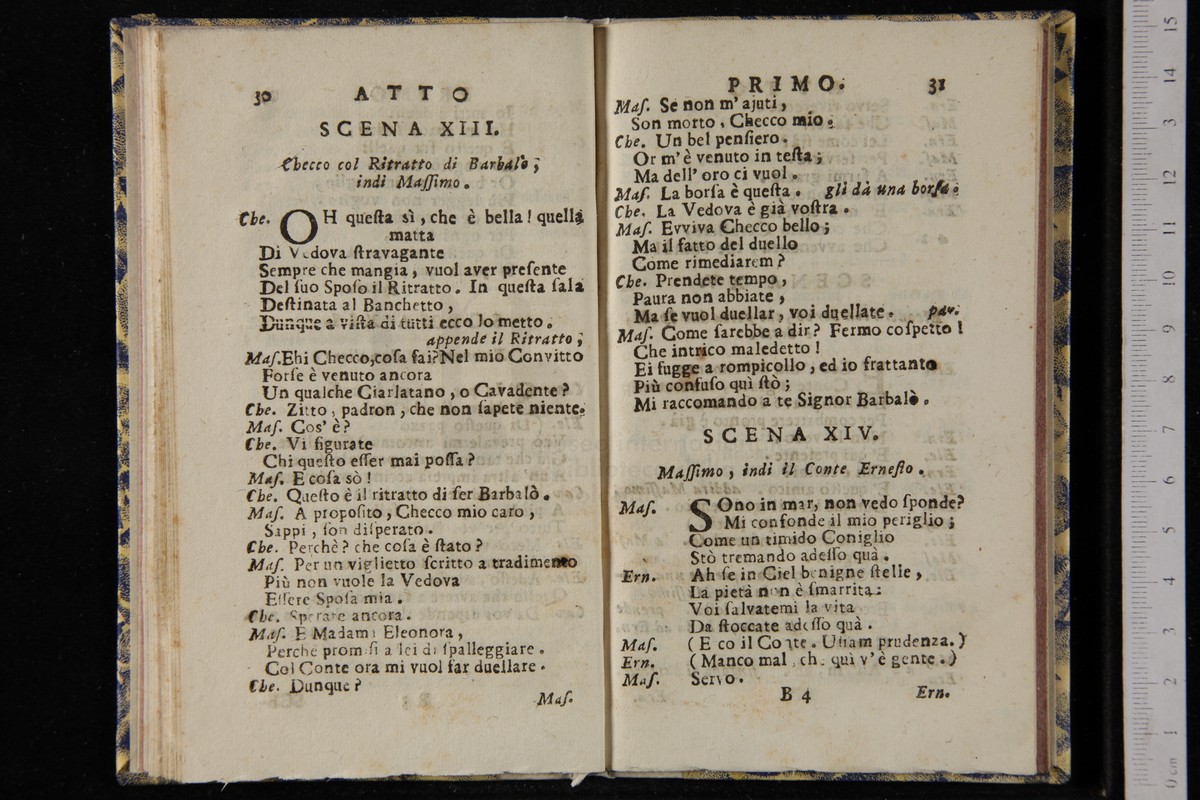 30 ATTO
SCENA XIII.
Checco col Ritratto di Barbalò;
indi Maſſimo.
Che. OH queſta sì, che è bella! quella
matta
Di Vedova ſtravagante
Sempre che mangia, vuol aver preſente
Del ſuo Spoſo il Ritratto. In queſta ſala
Deſtinata al Banchetto,
Dunque a viſta di tutti ecco lo metto.
appende il Ritratto;
Maſ. Ehi Checco, coſa fai? Nel mio Convitto
Forſe è venuto ancora
Un qualche Ciarlatano, o Cavadente?
Che. Zitto, padron, che non ſapete niente.
Maſ. Cos' è?
Che. Vi figurate
Chi queſto eſſer mai poſſa?
Maſ. E coſa sò!
Che. Queſto è il ritratto di ſer Barbalò.
Maſ. A propoſito, Checco mio caro,
Sappi, ſon diſperato.
Che. Perchè? che coſa è ſtato?
Maſ. Per un viglietto ſcritto a tradimento
Più non vuole la Vedova
Eſſere Spoſa mia.
Che. Sperate ancora.
Maſ. E Madama Eleonora,
Perchè promiſi a lei di ſpalleggiare.
Col Conte ora mi vuol far duellare.
Che. Dunque?
Maſ.
PRIMO. 31
Maſ. Se non m' ajuti,
Son morto, Checco mio.
Che. Un bel penſiero.
Or m' è venuto in teſta;
Ma dell' oro ci vuol.
Maſ. La borſa è queſta. gli dà una borſa.
Che. La Vedova è già voſtra.
Maſ. Evviva Checco bello;
Ma il fatto del duello
Come rimediarem?
Che. Prendete tempo,
Paura non abbiate,
Ma ſe vuol duellar, voi duellate. par.
Maſ. Come ſarebbe a dir? Fermo coſpetto!
Che intrico maledetto!
Ei fugge a rompicollo, ed io frattanto
Più confuſo quì ſtò;
Mi raccomando a te Signor Barbalò.
SCENA XIV.
Maſſimo, indi il Conte Erneſto.
Maſ. SOno in mar, non vedo ſponde?
Mi confonde il mio periglio;
Come un timido Coniglio
Stò tremando adeſſo quà.
Ern. Ah ſe in Ciel benigne ſtelle,
La pietà non è ſmarrita:
Voi ſalvatemi la vita
Da ſtoccate adeſſo quà.
Maſ. (E co il Conte. Uſiam prudenza.)
Ern. (Manco mal, che quì v' è gente.)
Maſ. Servo.
B 4 Ern.